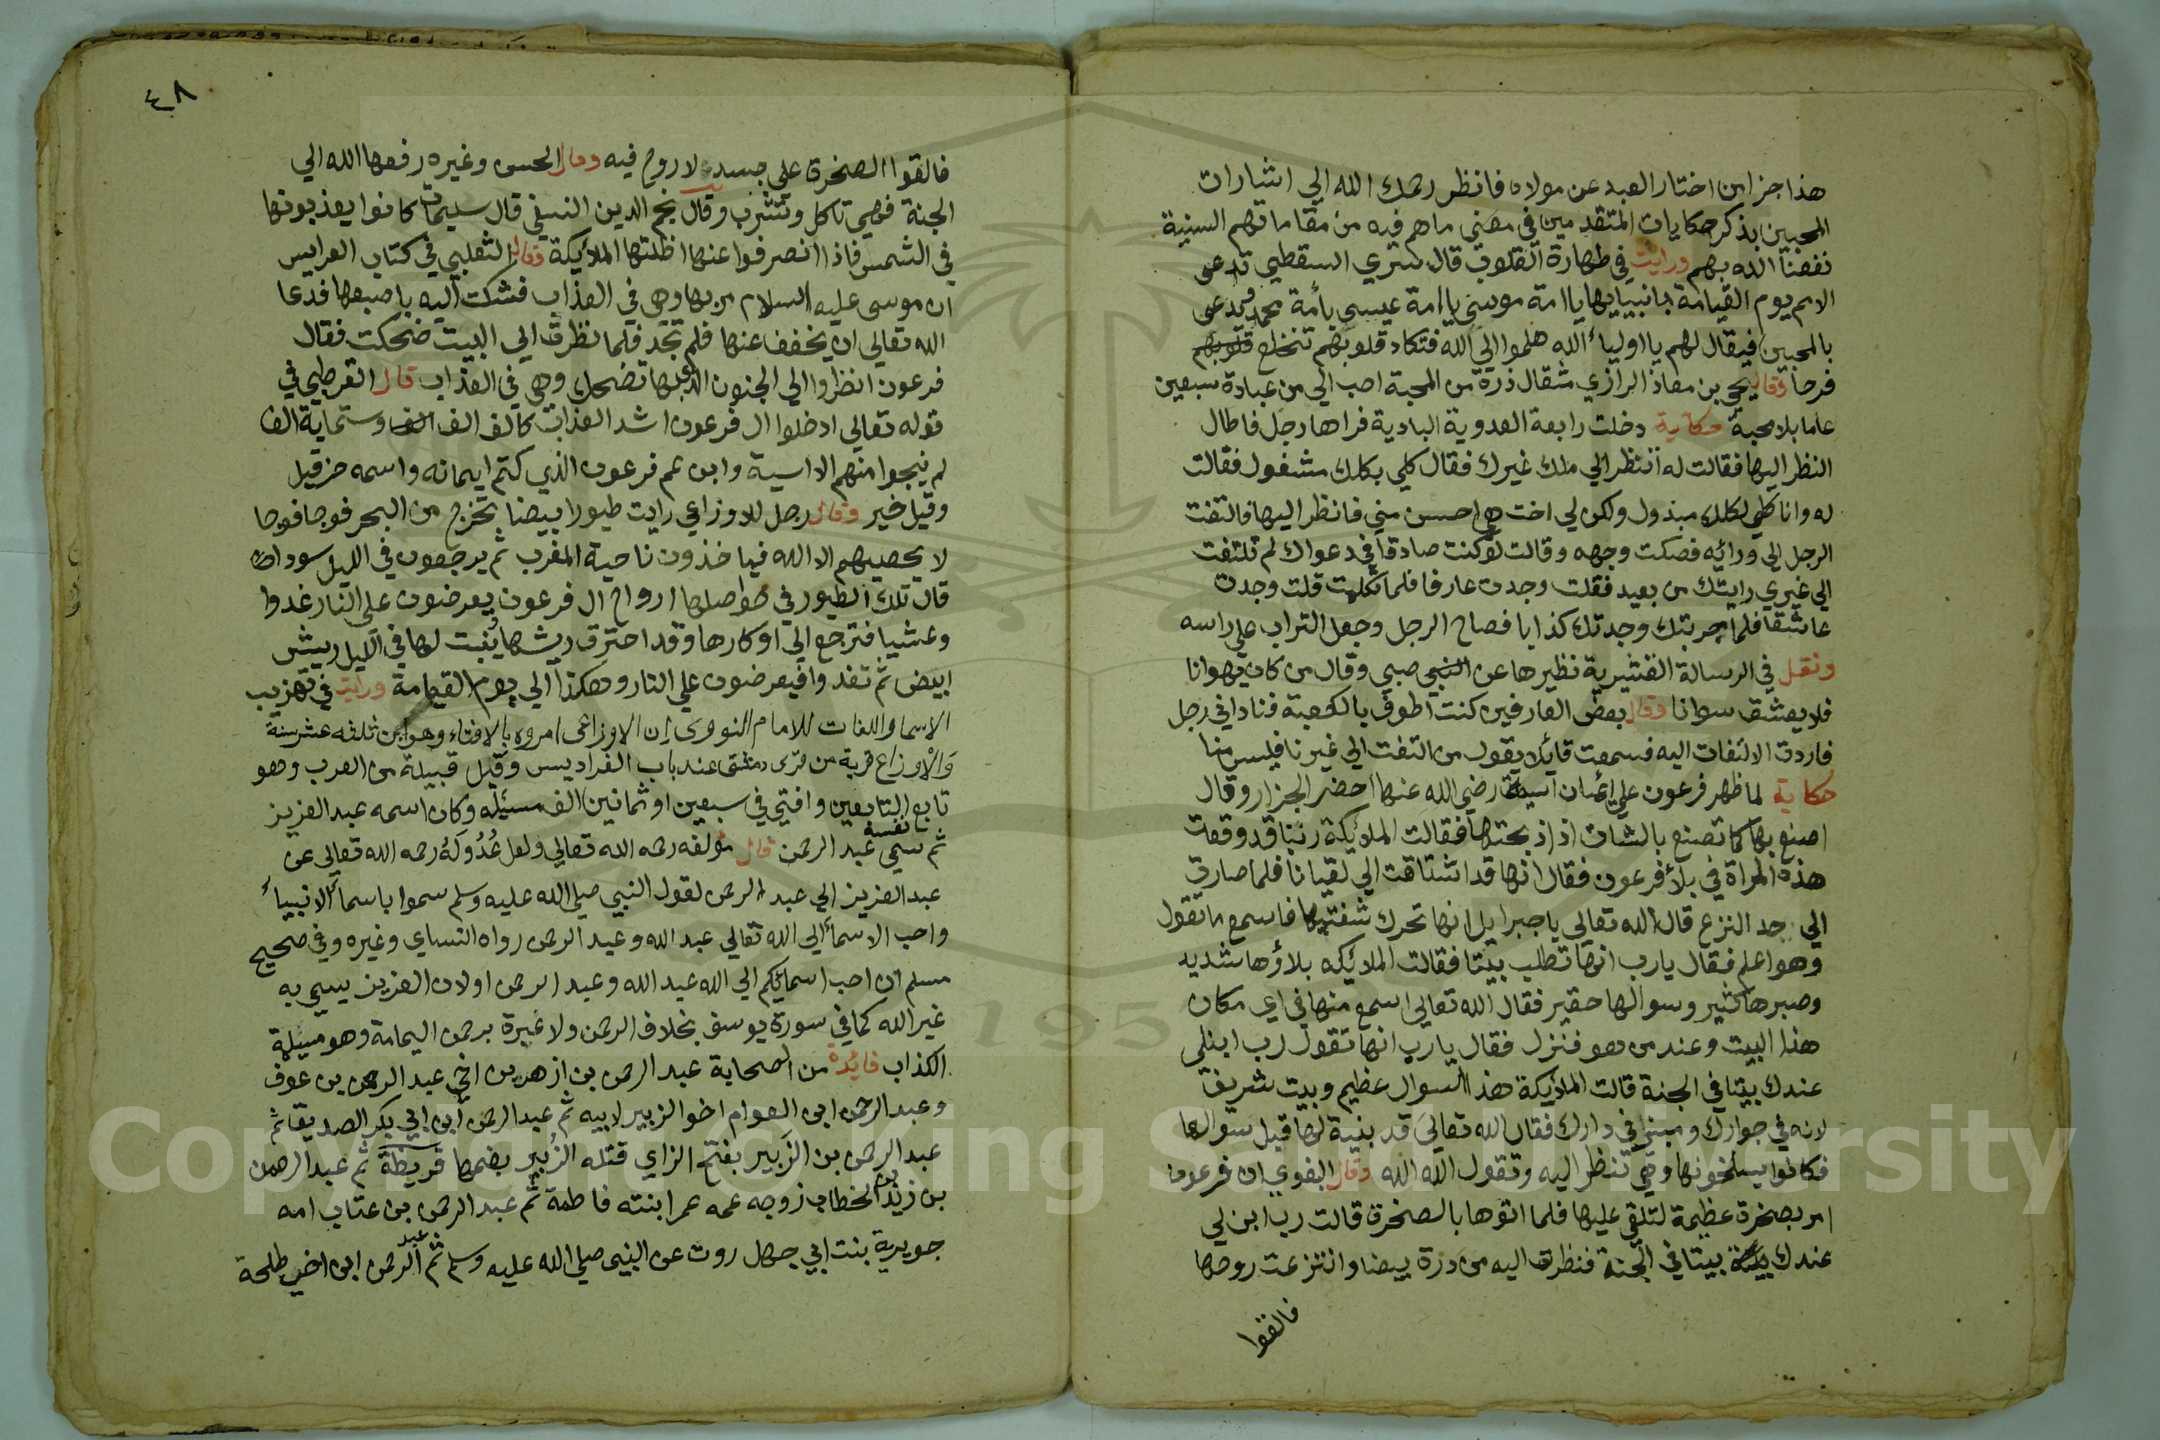 هذا جزا من اختار العبد عن مولاه فانظر رحمك الله الي اشارات
المحبين بذكر حكايات المتقدمين في معني ما هم فيه من مقاماتهم السنية
نفعنا الله بهم ورايت في طهارة القلوب قال سري السقطي تدعى
الامم يوم القيامة بانبيايها يا امة موسي يا امة عيسي يا أمة محمد ويدعى
بالمحبين فيقال لهم يا اولياء الله هلموا الي الله فتكاد قلوبهم تنخلع قلوبهم
فرحا وقال يحي بن معاذ الرازي مثقال ذرة من المحبة احب الي من عبادة سبعين
عاما بلا محبة حكاية دخلت رابعة العدوية البادية فراها رجل فاطال
النظر اليها فقالت له اتنظر الي ملك غيرك فقال كلي بكلك مشغول فقالت
له وانا كلي لكلك مبذول ولكن لي اخت هي احسن مني فانظر اليها فالتفت
الرجل الي ورائه فصكت وجهه وقالت لو كنت صادقا في دعواك لم تلتفت
الي غيري رايتك من بعيد فقلت وجدت عارفا فلما تكلمت قلت وجدت
عاشقا فلما جربتك وجدتك كذابا فصاح الرجل وجعل التراب علي راسه
ونقل في الرسالة القشيرية نظيرها عن النبي صبي وقال من كان يهوانا
فلا يعشق سوانا وقال بعض العارفين كنت اطوف بالكعبة فناداني رجل
فاردت الالتفات اليه فسمعت قائلا يقول من التفت الي غيرنا فليس منا
حكاية لما ظهر فرعون علي ايمان اسية رضي الله عنها احضر الجزار وقال
اصنع بها كما تصنع بالشاة اذا ذبحتها فقالت الملائكة ربنا قد وقعت
هذه المراة في بلاء فرعون فقال انها قد اشتاقت الي لقيانا فلما صارت
الي حد النزع قال الله تعالي يا جبرايل انها تحرك شفتيها فاسمع ما تقول
وهو اعلم فقال يارب انها تطلب بيتا فقالت الملائكة بلاؤها شديد
وصبرها كثير وسوالها حقير فقال الله تعالي اسمع منها في اي مكان
هذا البيت وعند من هو فنزل فقال يارب انها تقول رب ابن لي
عندك بيتا في الجنة قالت الملائكة هذا السوال عظيم وبيت شريف
لانه في جوارك ومبني في دارك فقال الله تعالي قد بنيته لها قبل سوالها
فكانوا يسلخونها وهي تنظر اليه وتقول الله الله وقال البغوي ان فرعون
امر بصخرة عظيمة لتلقي عليها فلما اتوها بالصخرة قالت رب ابن لي
عندك بيتا في الجنة فنظرت اليه من درة بيضا وانتزعت روحها
فالقوا
٤٨
فالقوا الصخرة علي جسد لا روح فيه وقال الحسن وغيره رفعها الله الي
الجنة فهي تاكل وتشرب وقال نجم الدين النسفي قال سليمان كانوا يعذبونها
في الشمس فاذا انصرفوا عنها اظلتها الملائكة وقال الثعلبي في كتاب العرايس
ان موسي عليه السلام مر بها وهي في العذاب فشكت اليه باصبعها فدعا
الله تعالي ان يخفف عنها فلم تجد فلما نظرت الي البيت ضحكت فقال
فرعون انظروا الي الجنون الذي بها تضحك وهي في العذاب قال القرطبي في
قوله تعالي ادخلوا ال فرعون اشد العذاب كان الف الف وستماية الف
لم ينجوا منهم الا اسية وابن عم فرعون الذي كتم ايمانه واسمه حزقيل
وقيل خير وقال رجل للاوزاعي رايت طيورا بيضا تخرج من البحر فوجا فوجا
لا يحصيهم الا الله فياخذون ناحية المغرب ثم يرجعون في الليل سودا
قال تلك الطيور في حواصلها ارواح ال فرعون يعرضون علي النار غدوا
وعشيا فترجع الي اوكارها وقد احترق ريشها يُنبت لها في الليل ريش
ابيض ثم تغدوا فيعرضون علي النار وهكذا الي يوم القيامة ورايت في تهذيب
الاسما واللغات للامام النووي ان الاوزاعي امروه بالافتاء وهو ابن ثلثه عشر سنة
والاوزاع قرية من قرى دمشق عند باب الفراديس وقيل قبيلة من العرب وهو
تابع التابعين وافتي في سبعين او ثمانين الف مسئله وكان اسمه عبد العزيز
ثم سمي نفسه عبد الرحمن قال مولفه رحمه الله تعالي ولعل عُدُولَهُ رحمه الله تعالي عن
عبد العزيز الي عبد الرحمن لقول النبي صلي الله عليه وسلم سموا باسماء الانبياء
واحب الاسماء الي الله تعالي عبد الله وعبد الرحمن رواه النساي وغيره وفي صحيح
مسلم ان احب اسمائكم الي الله عبد الله وعبد الرحمن اولان العزيز يسمي به
غير الله كما في سورة يوسف بخلاف الرحمن ولا عبرة برحمن اليمامة وهو مسيلمة
الكذاب فايدة من الصحابة عبد الرحمن بن ازهر بن اخي عبد الرحمن بن عوف
وعبد الرحمن ابن العوام اخو الزبير لابيه ثم عبد الرحمن ابن ابي بكر الصديق ثم
عبد الرحمن بن الزَبير بفتح الزاي قتله الزُبير بضمها قريظة ثم عبد الرحمن
بن زيد بن الخطاب زوجه عمه عمر ابنته فاطمة ثم عبد الرحمن بن عتاب امه
جويرية بنت ابي جهل روت عن النبي صلي الله عليه وسلم ثم عبد الرحمن ابن اخي طلحة
Copyright © King Saud University
1957